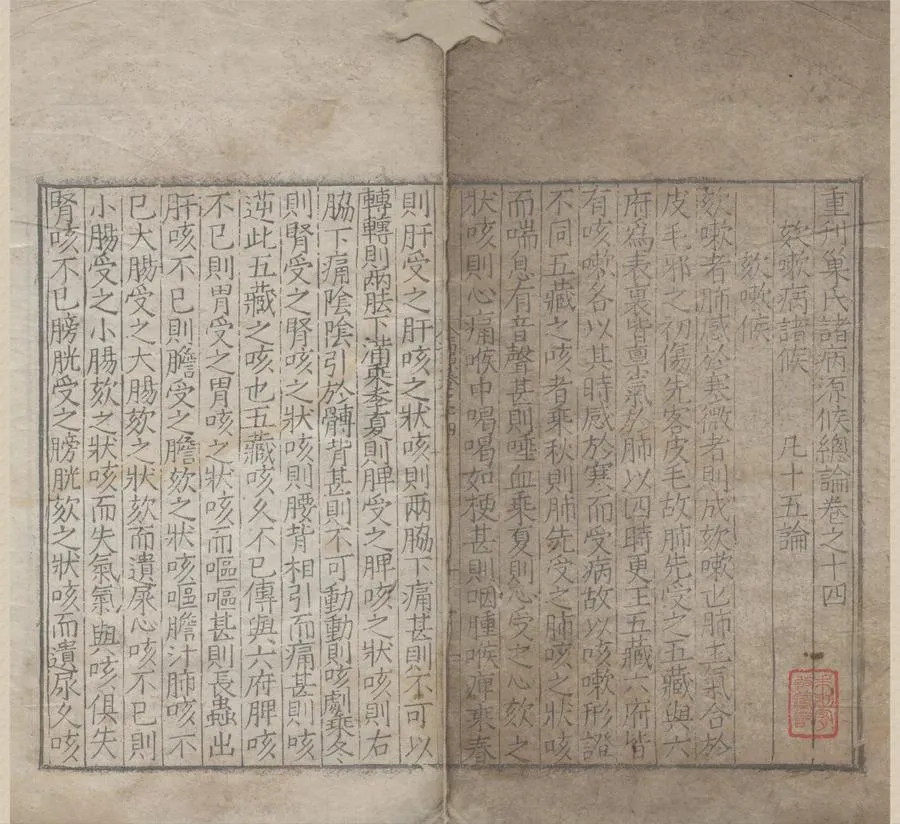 重刊巢氏諸病源候總論卷之十四
欬嗽病諸候　凡十五論
欬嗽候
欬嗽者肺感於寒微者則成欬嗽也肺主氣合於
皮毛邪之初傷先客皮毛故肺先受之五藏與六
府爲表裏皆稟氣於肺以四時更王五藏六府皆
有咳嗽各以其時感於寒而受病故以咳嗽形證
不同五藏之咳者乘秋則肺先受之肺咳之狀咳
而喘息有音聲甚則唾血乘夏則心受之心欬之
狀咳則心痛喉中喝喝如梗甚則咽腫喉痺乘春
則肝受之肝咳之狀咳則兩脇下痛甚則不可以
轉轉則兩胠下滿乘季夏則脾受之脾咳之狀咳則右
脇下痛陰陰引於髆背甚則不可動動則咳劇乘冬
則腎受之腎咳之狀咳則腰背相引而痛甚則咳
逆此五藏之咳也五藏咳久不已傳與六府脾咳
不已則胃受之胃咳之狀咳而嘔嘔甚則長蟲出
肝咳不已則膽受之膽欬之狀咳嘔膽汁肺咳不
已大腸受之大腸欬之狀欬而遺屎心咳不已則
小腸受之小腸欬之狀咳而失氣氣與咳俱失
腎咳不已膀胱受之膀胱欬之狀咳而遺尿久咳